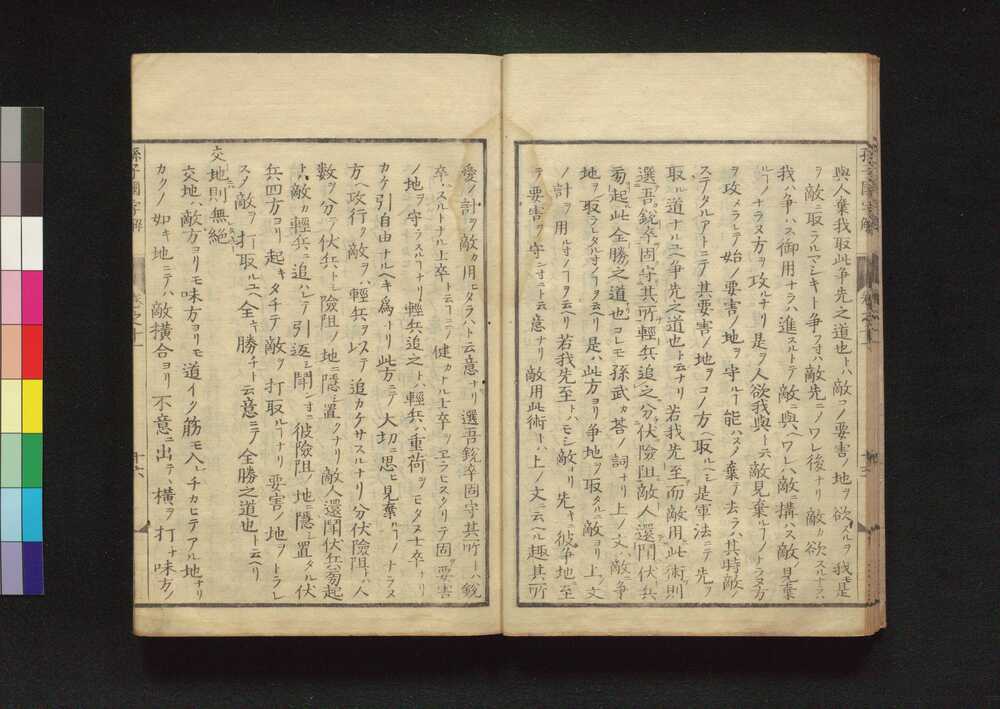 與人棄我取此争先之道也トハ敵コノ要害ノ地ヲ欲スルヲ我モ是
ヲ敵ニ取ラルマシキト争フ寸ハ敵先ニノワレ後ナリ敵カ欲スル寸ハ
我ハ争ハス御用ナラハ進スルトテ敵ニ與ヘワレハ敵ニ搆ハス敵ノ見棄
ルヿノナラヌ方ヲ攻ルナリ是ヲ人欲我與ト云敵ノ見棄ルヿノナラヌ方
ヲ攻メラレテ始ノ要害ノ地ヲ守ルヿ能ハスノ棄テ去ラハ其時敵ノ
ステタルアトニテ其要害ノ地ヲコノ方ヘ取ルヘシ是軍法ニテ先ヲ
取ル道ナルユヘ争先之道也ト云ナリ若我先至而敵用此術則
選吾銳卒固守其所輕兵追之分伏險阻敵人還鬪伏兵
旁起此全勝之道也コレモ孫武カ荅ノ詞ナリ上ノ文ハ敵ニ争
地ヲ取ラレタル寸ノヿヲ云ヘリ是ハ此方ヨリ争地ヲ取タルニ敵ヨリ上ノ文
ノ計ヲ用ル寸ノヿヲ云ヘリ若我先至トハモシ敵ヨリ先キニ彼争地ニ至
ヲ要害ヲ守シ寸ニト云意ナリ敵用此術トハ上ノ文ニ云ヘル趣其所
愛ノ計ヲ敵カ用ヒタラハト云意ナリ選吾銳卒固守其所トハ銳
卒ハスルトナル士卒ト云ヿニテ健カナル士卒ヲヱラヒスクリテ固ク要害
ノ地ヲ守ラスルヿナリ輕兵追之トハ輕兵ハ重荷ヲモタヌ士卒ナリ
カケ引自由ナルヘキ爲ナリ此方ニテ大切ニ思ヒ見棄ルヿノナラヌ
方ヘ攻行ク敵ヲハ輕兵ヲ以テ追カケサスルナリ分伏險阻トハ人
數ヲ分テ伏兵トシ險阻ノ地ニ隱シ置クナリ敵人還鬪伏兵旁起
トハ敵カ輕兵ニ追ハレテ引返シ鬪シ寸ニ彼險阻ノ地ニ隱シ置タル伏
兵四方ヨリ起キタチテ敵ヲ打取ルヿナリ要害ノ地ヲトラレ
スノ敵ヲ打取ルユヘ全キ勝チト云意ニテ全勝之道也ト云ヘリ
交地則無絶
交地ハ敵方ヨリモ味方ヨリモ道イク筋モ入レチカヒテアル地ナリ
カクノ如キ地ニテハ敵横合ヨリ不意ニ出テ横ヲ打ナ味方ノ
孫子國字解
十六